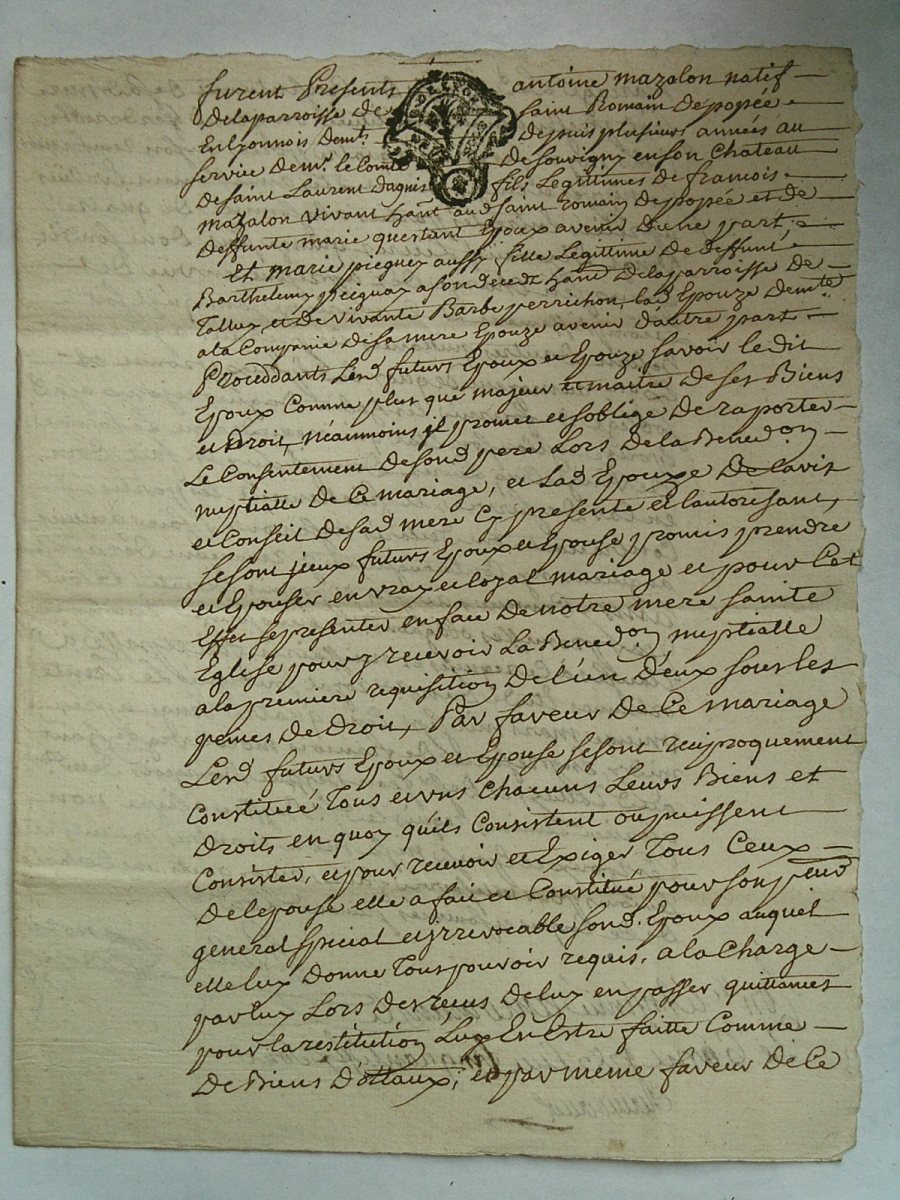 furent Presents antoine mazalon natif
de la parroisse de saint Romain de popée
En lyonnois demt. depuis plusieurs années au
service de mr. le Comte de souvigny en son Chateau
de saint Laurent dagnis fils Legittimes de francois
mazalon vivant habt. aud saint romain de popée et de
deffunte marie questant Epoux avenir dune part.
Et marie piequey aussy fille Legittime de deffunt
Barthelemy piequay a son decedt habt. de la parroisse de
et de vivante Barbe perrichon, lad Epouze demte
a la Companie de sa mere Epouze avenir d'autre part
Proceddants Lesd futurs Epoux et Epouze savoir le dit
Epoux Comme plus que majeur et maitre de ses Biens
et Droit, néaumoins jl promet et soblige de raporter
Le Consentement de sond pere Lors de la Benedon
nuptialle de Ce mariage, et Lad Epouze de lavis
et Conseil de sad mere Cy presente et lautorisant,
se sont jceux futurs Epoux et Epouse promis prendre
et Epouser en vray et loyal mariage et pour Cet
Effet se presenter en face de notre mere sainte
Eglise pour y recevoir La Benedon nuptialle
a la premiere requisition de l'un d'eux sous les
peines de droit, Par faveur de Ce mariage
Lesd futurs Epoux et Epouse se sont reciproquement
Constitué Tous et uns Chacuns Leurs Biens et
droits en quoy quils Consistent ou puissent
Consister, et pour recevoir et Exiger Tous Ceux
de lepouse elle a fait et Constitué pour son
general special et jrrevocable sond. Epoux auquel
elle luy donne Tous pouvoir requis, a la Charge
par luy Lors des recus de luy en passer quittances
pour la restitution Luy En Estre faitte Comme
de Biens dottaux; et par meme faveur de Ce